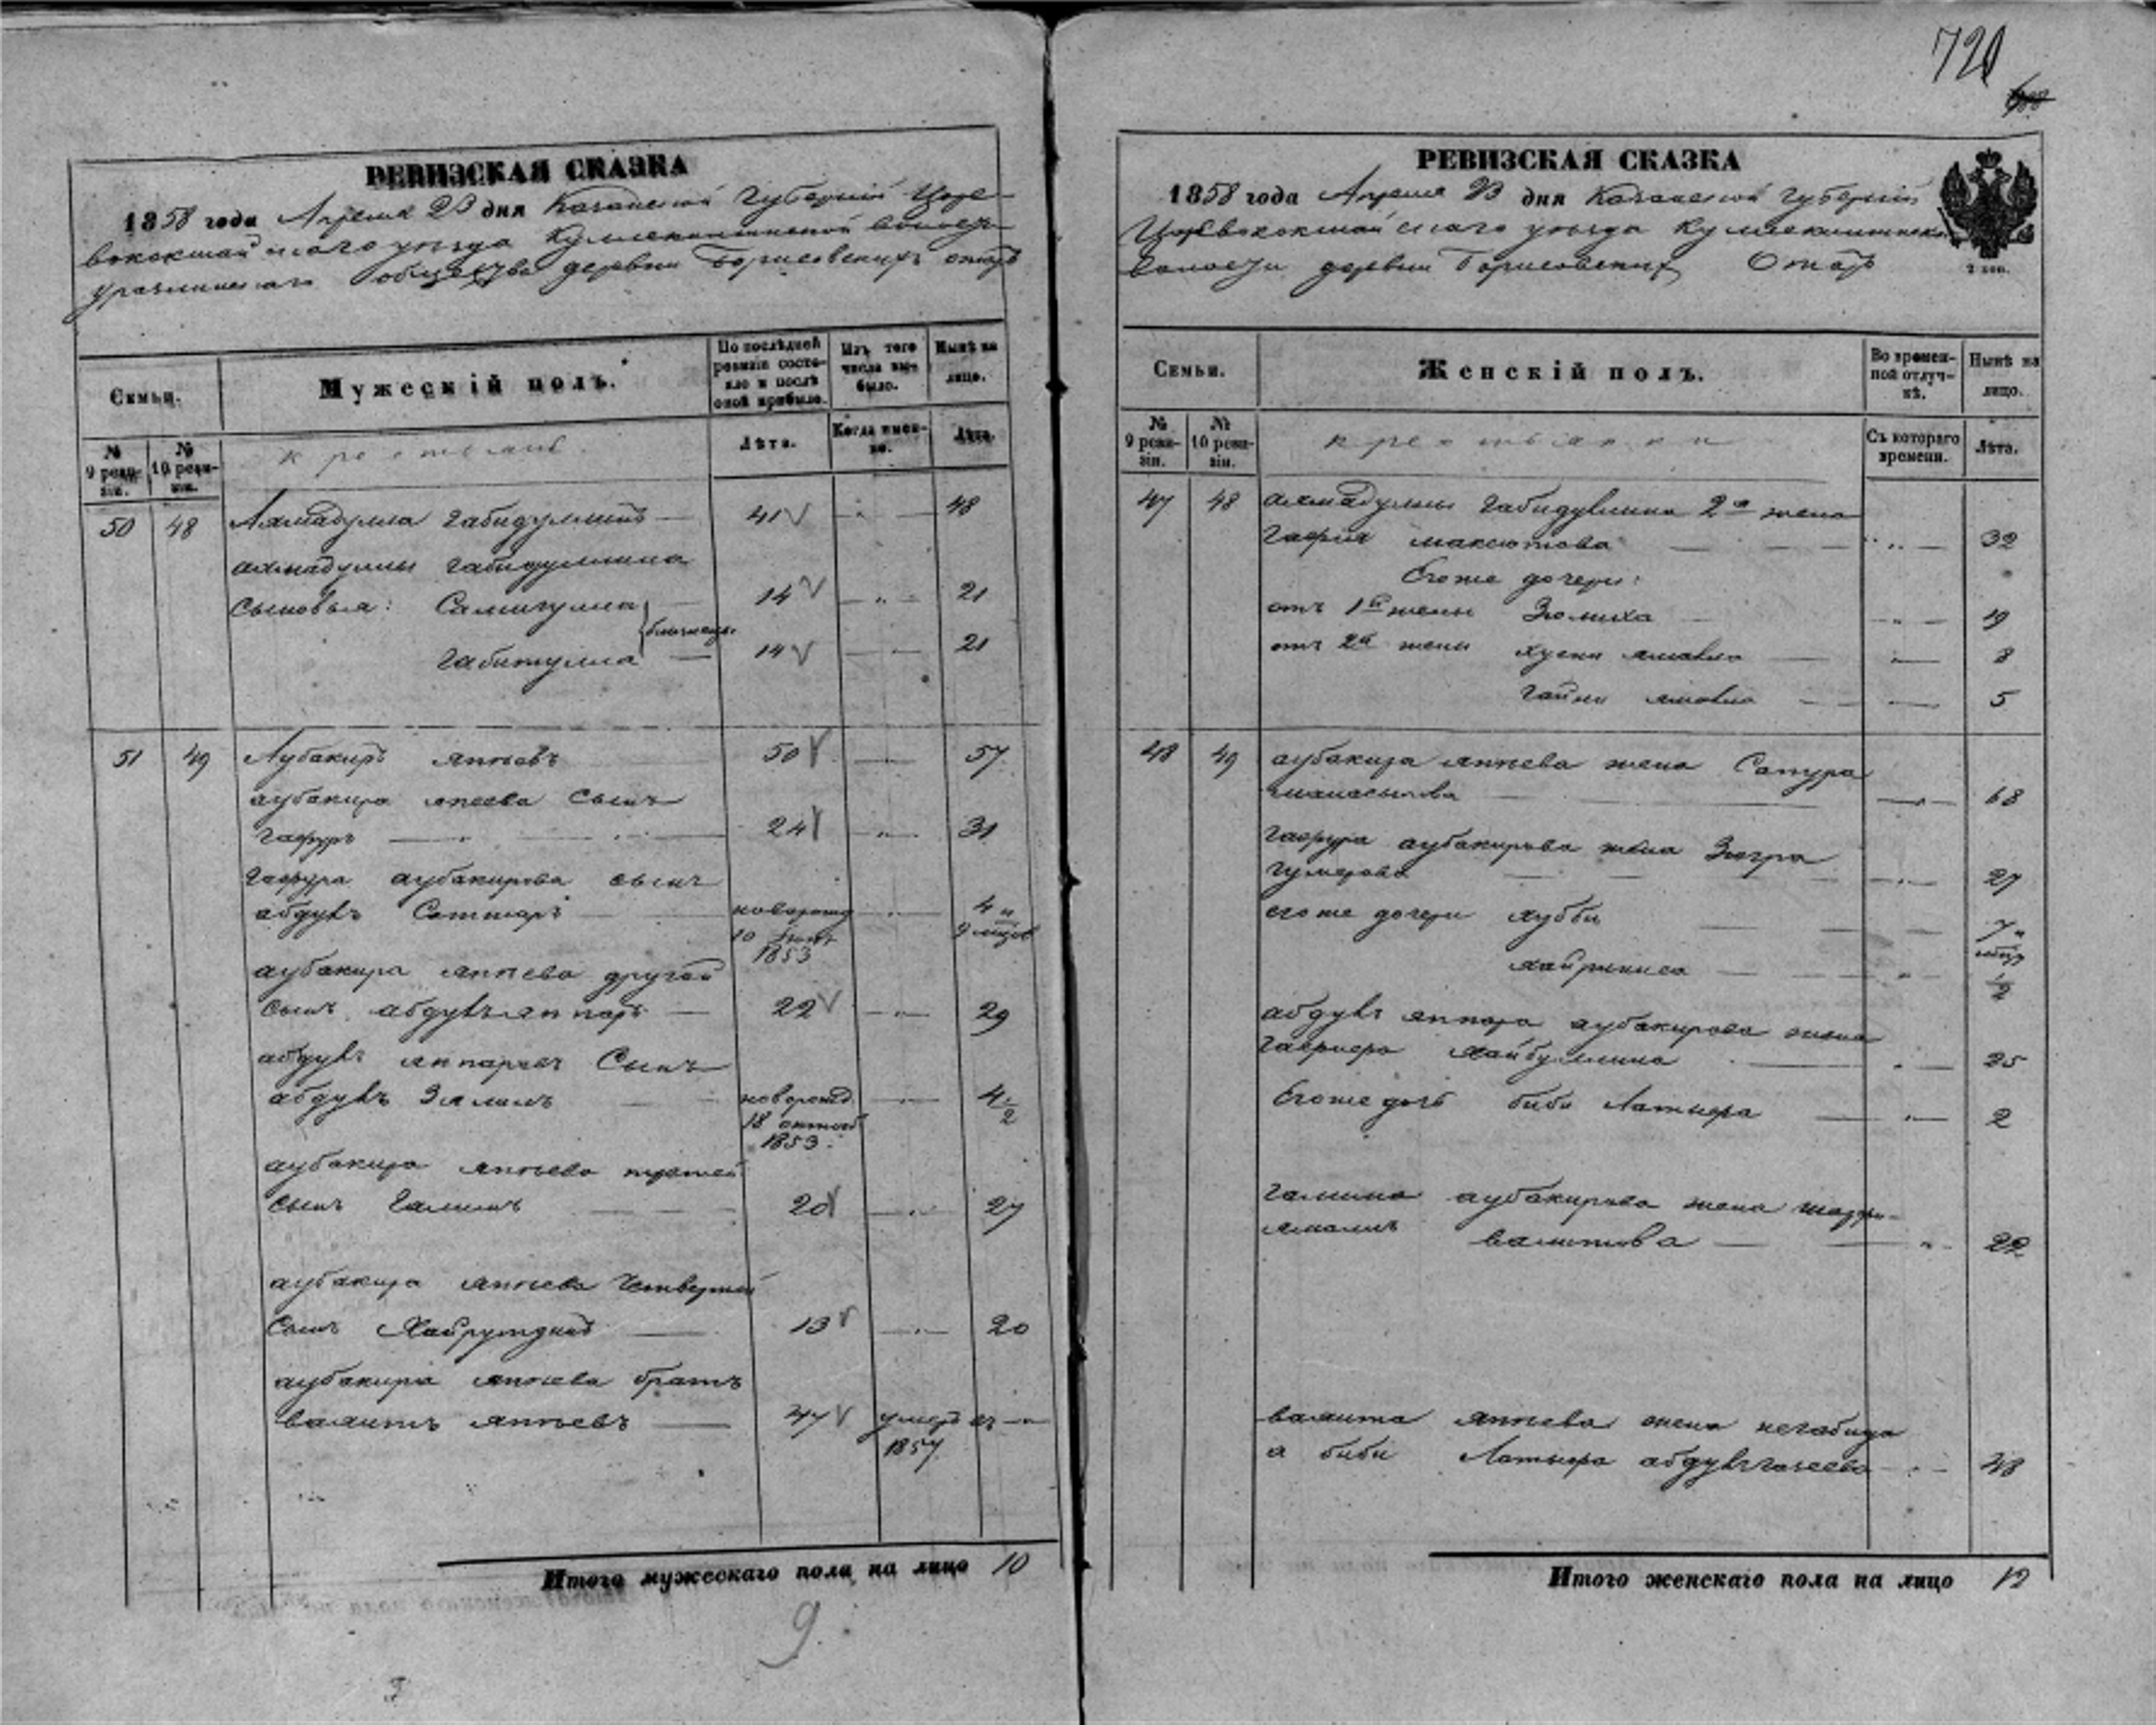 720
РЕВИЗСКАЯ СКАЗКА
1858 года Апреля 23 дня Казанской Губернiи Царе-
вококшайскаго уезда волости
общества деревни Борисовских отар
Семьи.
Мужескiй полъ.
По послѣдней ревизiи состо-яло и послѣ оной прибыло.
Изъ того числа вы-было.
Нынѣ на лицо.
№ 9 реви-зiи.
№ 10 реви-зiи.
крестьяне
Лѣта.
Когда имен-но.
Лѣта.
50 48 Ахмадулла Габидуллинъ 41 48
ахмадуллы габидуллина
сыновья: Самигулла 14 21
близнецы
Габитулла 14 21
51 49 Аубакиръ яппѣевъ 50 57
аубакира япеева сынъ
гафуръ 24 31
гафура аубакирова сынъ
абдулъ Саттаръ новорожд 4 и
10 1853 9 мцов
аубакира яппѣева другой
сынъ абдулъ яппаръ 22 29
абдулъ яппаровъ Сынъ
абдулъ Зялилъ новорожд. 4 1/2
18 октяб 1853
аубакира яппѣева третей
сынъ Галимъ 20 27
аубакира яппѣева Четвертой
Сынъ Хайрутдинъ 13 20
аубакира яппѣева братъ
валитъ яппѣевъ 47 умеръ въ
1857
Итого мужескаго пола на лицо 10
9.
РЕВИЗСКАЯ СКАЗКА
1858 года Апреля 23 дня Казанской Губернiи
Царевококшайскаго уезда
волости деревни Борисовских Отар
2 коп.
Семьи.
Женскiй полъ.
Во времен-ной отлуч-кѣ.
Нынѣ на лицо.
№ 9 реви-зiи.
№ 10 реви-зiи.
крестьянки
Съ котораго времени.
Лѣта.
47 48 ахмадуллы Габидуллина 2я жена
Гафия максютова 32
Егоже дочери:
отъ 1й жены Зюлиха 19
отъ 2й жены хусни ямавла 8
гайни ямавла 5
48 49 аубакира яппѣева жена Сагура
68
гафура аубакирова жена Зюгра
гумерова 27
егоже дочери хубби 7
1/2
абдулъ яппара аубакирова жена
хайбуллина 25
Егоже дочь биби Латыфа 2
галима аубакирова жена
валитова 22
валита яппѣева жена
а биби Латыфа 48
Итого женскаго пола на лицо 12